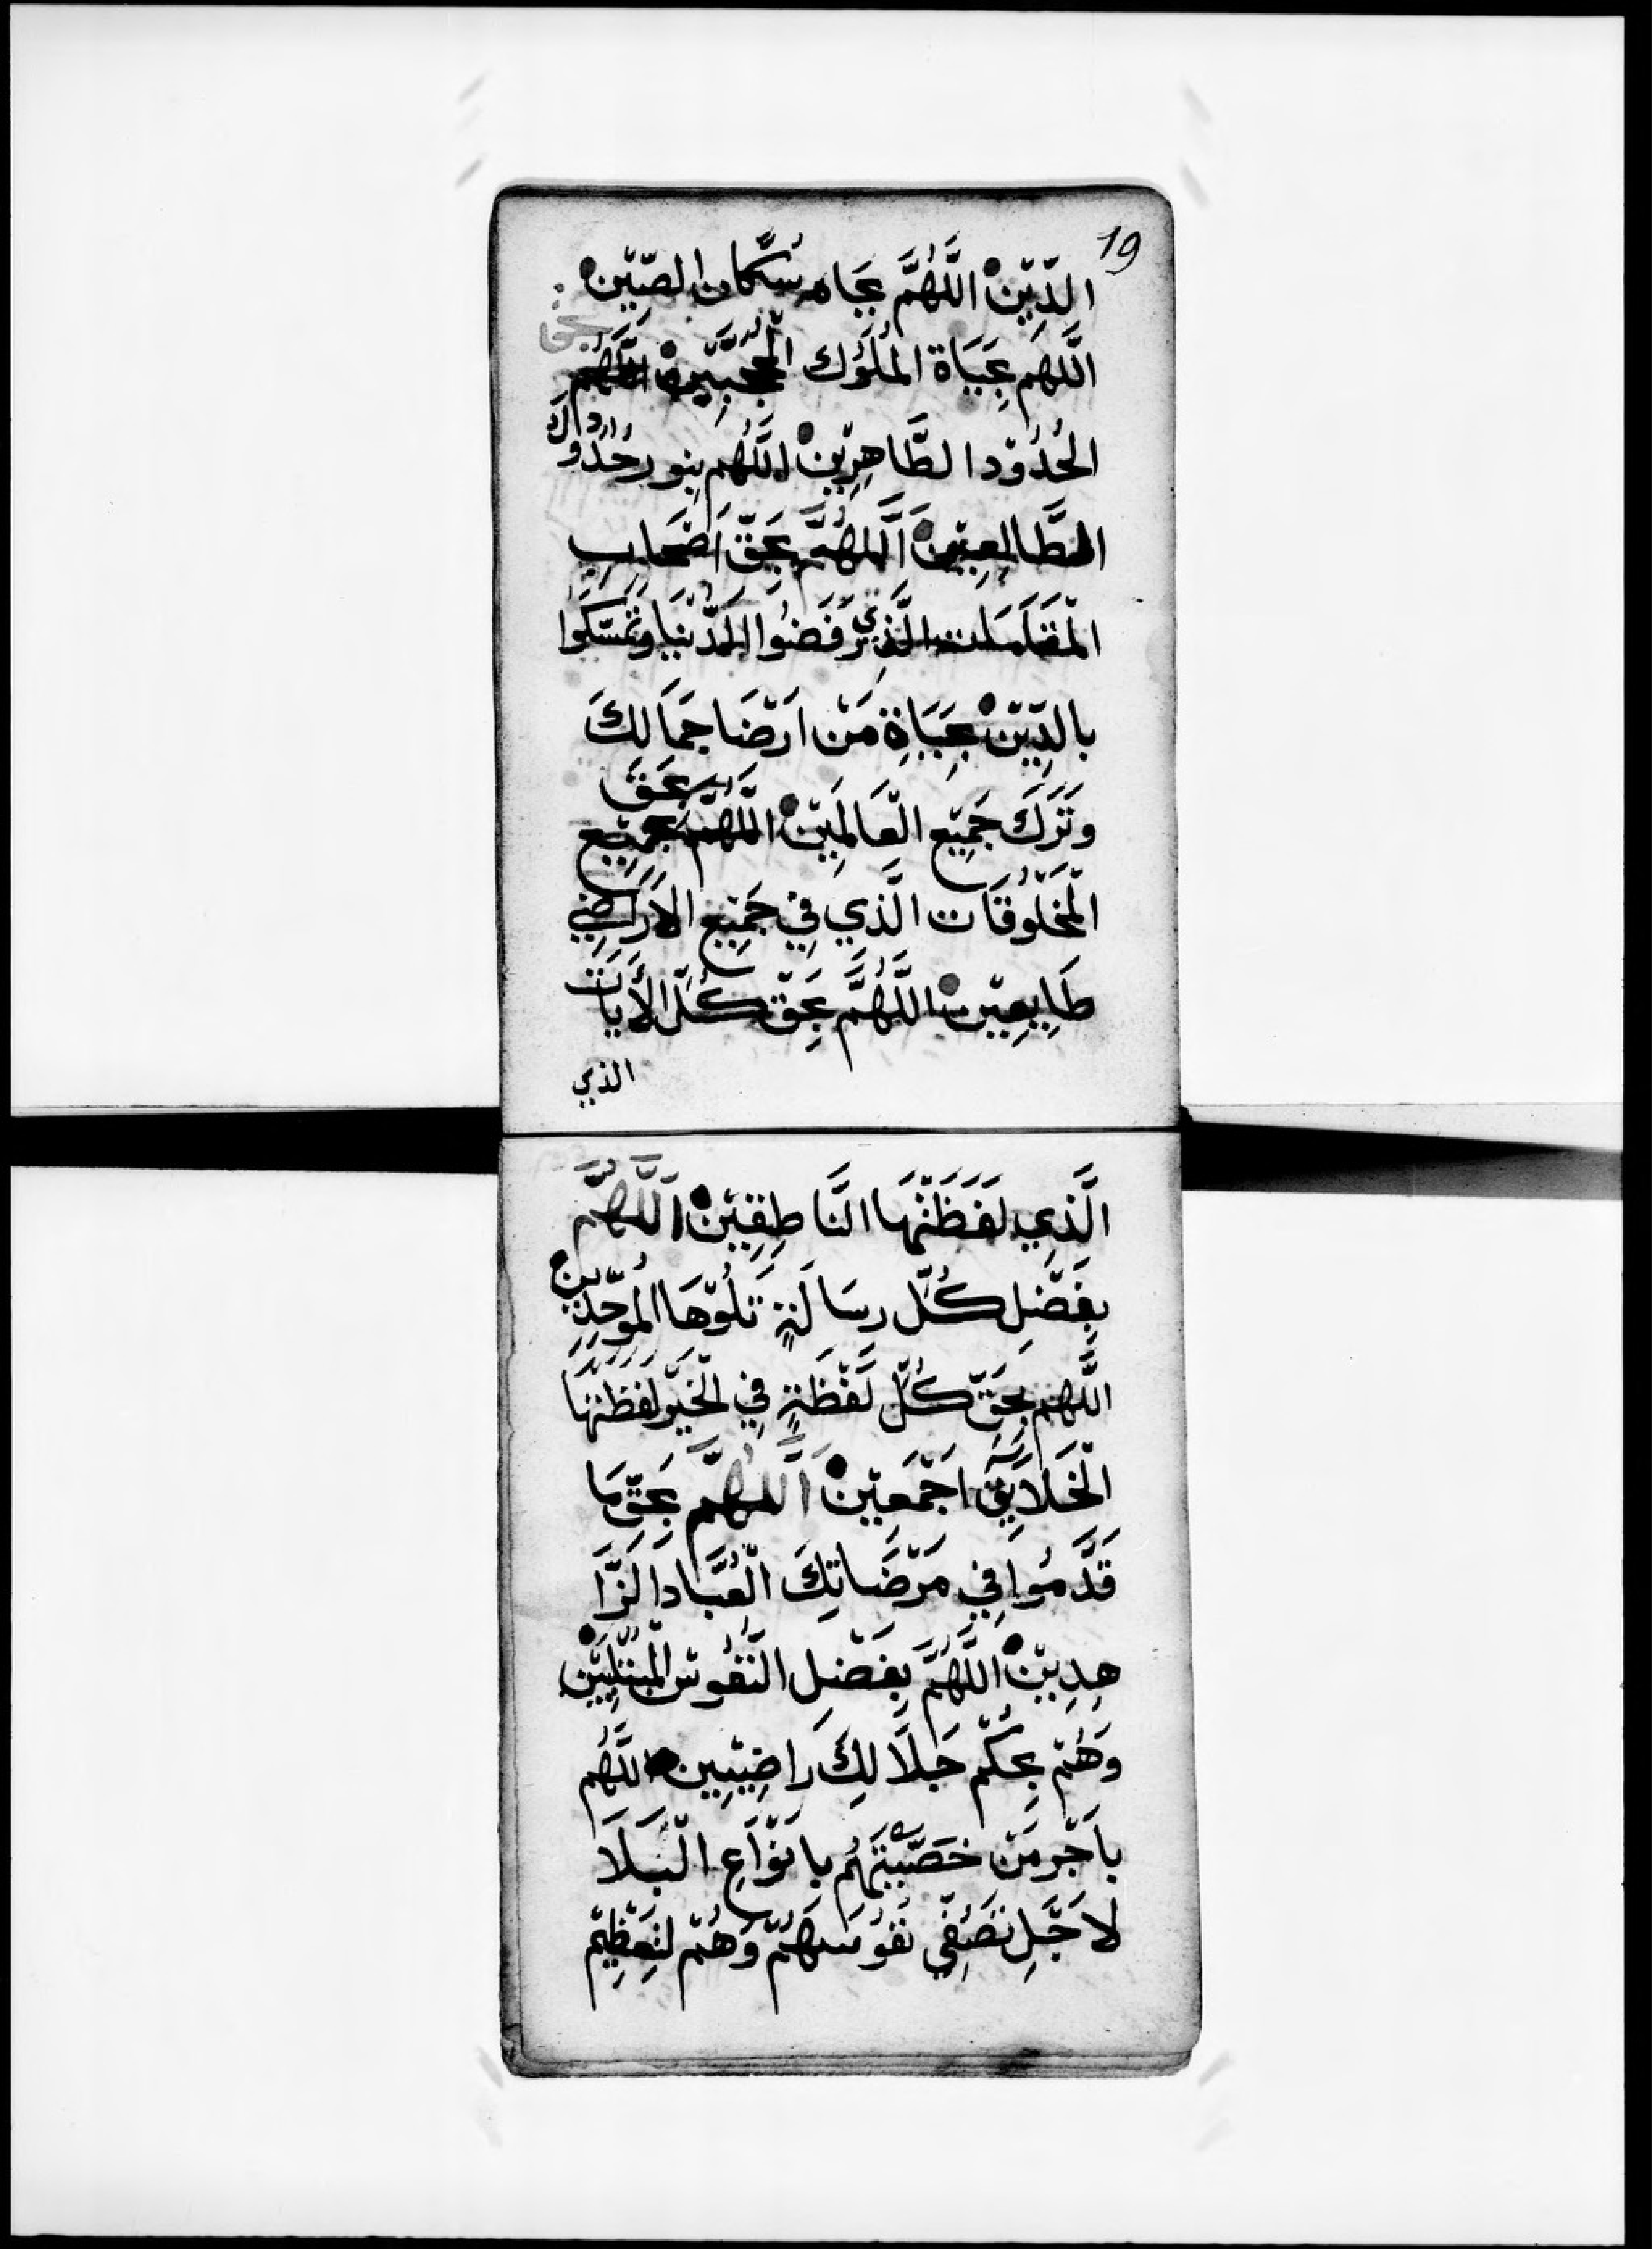 19
الدِّيْنْ اللَّهُمَّ بجَاه سُكَّان الصِّيْنْ
اللَّهم بِحَيَاة المُلُوْك المحجَّبِيْنْ اللَّهُم
بحق
الحُدُوْد الطَّاهِرِيْنْ اللَّهُم بِنور حُدُوْدك
الطَّالِعِيْنْ اَللَّهُمَّ بِحَقّ اَصْحَاب
الَّذِي رَفَضُوا الدُّنْيَا وَتمَسَّكُوا
بالدِّيْنْ بِحَيَاةِ مَنْ ارْضَا جَمَالَكَ
وَتَرَكَ جَمِيْع الْعَالَمِيْنْ اللَّهُمَّ بحَق جَمِيْع
الْمَخْلُوْقَات الَّذي فِيْ جَمِيْع الاَرَاضِي
طَايِعِيْنْ اللَّهُمَّ بِحَقّ كُلّ الاَيَات
الذي
الَّذِي لَفَظَتْهَا النَّاطِقِيْنْ اَللَّهُمَّ
بِفَضْلِ كُلّ رسَالَةٍ تَلُوْهَا المُوَحِّدِيْن
اللَّهم بِحَقّ كُلّ لَفْظَةٍ فِي الْخَيْر لَفَظَتْهَا
الْخَلَايِقْ اجْمَعِيْنْ اَللَّهُمَّ بِحَقّ مَا
قَدَّمُوا فِي مَرْضَاتِكَ الْعُبَّاد الزَّا
هِدِيْنْ اللَّهُمَّ بِفَضْلِ النّفُوْس الْمُبْتَلِيِيْنْ
وَهُمْ بِحُكْم جَلَالِكَ رَاضِيِيْن اللَّهُم
بِاَجْر مَنْ خصَّيْتَهُم بِانْوَاعِ الْبَلَا
لاَجْلِ تَصْفِي نفُوْسهُمْ وَهُمْ لتِعْظِيْم